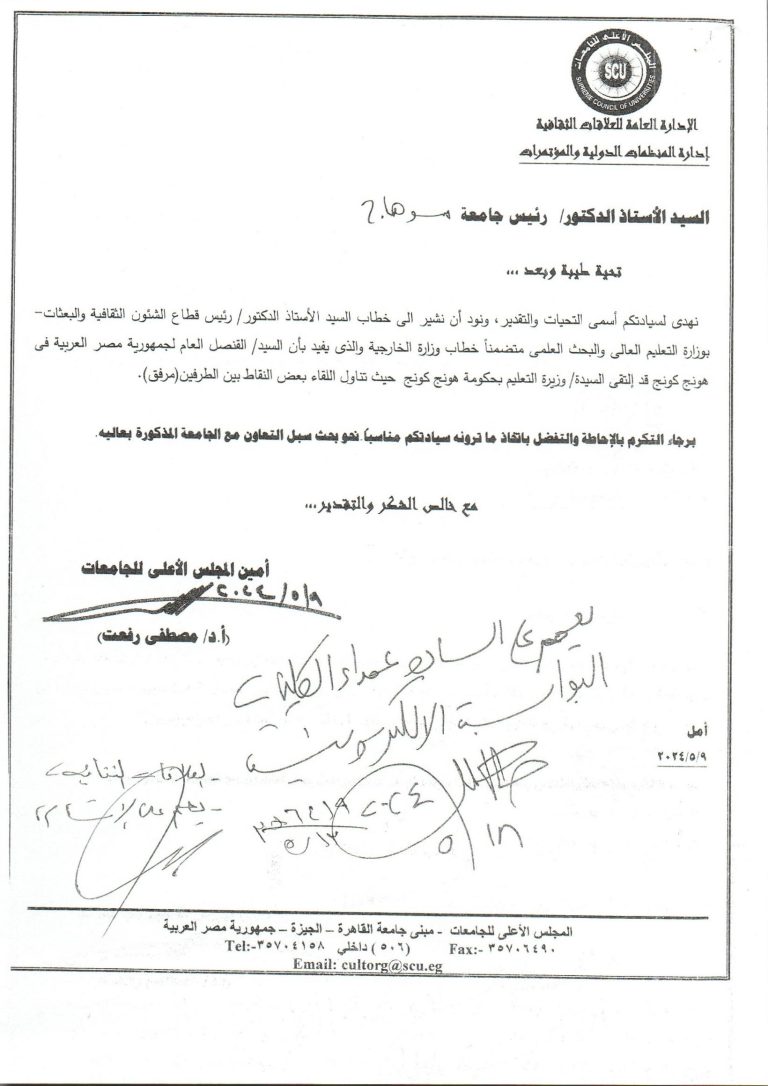 المجلس الأعلى للجامعات
SCU
SUPREME COUNCIL OF UNIVERSITIES
الإدارة العامة للعلاقات الثقافية
إدارة المنظمات الدولية والمؤتمرات
السيد الأستاذ الدكتور/ رئيس جامعة سوهاج
تحية طيبة وبعد ...
نهدى لسيادتكم أسمى التحيات والتقدير ، ونود أن نشير الى خطاب السيد الأستاذ الدكتور/ رئيس قطاع الشئون الثقافية والبعثات-
بوزارة التعليم العالى والبحث العلمى متضمناً خطاب وزارة الخارجية والذى يفيد بأن السيد/ القنصل العام لجمهورية مصر العربية فى
هونج كونج قد إلتقى السيدة/ وزيرة التعليم بحكومة هونج كونج حيث تناول اللقاء بعض النقاط بين الطرفين(مرفق).
برجاء التكرم بالإحاطة والتفضل باتخاذ ما ترونه سيادتكم مناسباً نحو بحث سبل التعاون مع الجامعة المذكورة بعاليه.
مع خالص الشكر والتقدير...
أمين المجلس الأعلى للجامعات
٢٠٢٤/٥/٩
(أ.د/ مصطفى رفعت)
يعمم على السادة عمداء الكليات
البوابة الالكترونية
أمل
٢٠٢٤/٥/٩
- العلاقات الثقافية
- يعمم على
٥/١٨
٥/١٣
المجلس الأعلى للجامعات - مبنى جامعة القاهرة – الجيزة – جمهورية مصر العربية
Tel:-٣٥٧٠٤١٥٨ داخلي (٥٠٦) Fax:- ٣٥٧٠٦٤٩٠
Email: cultorg@scu.eg